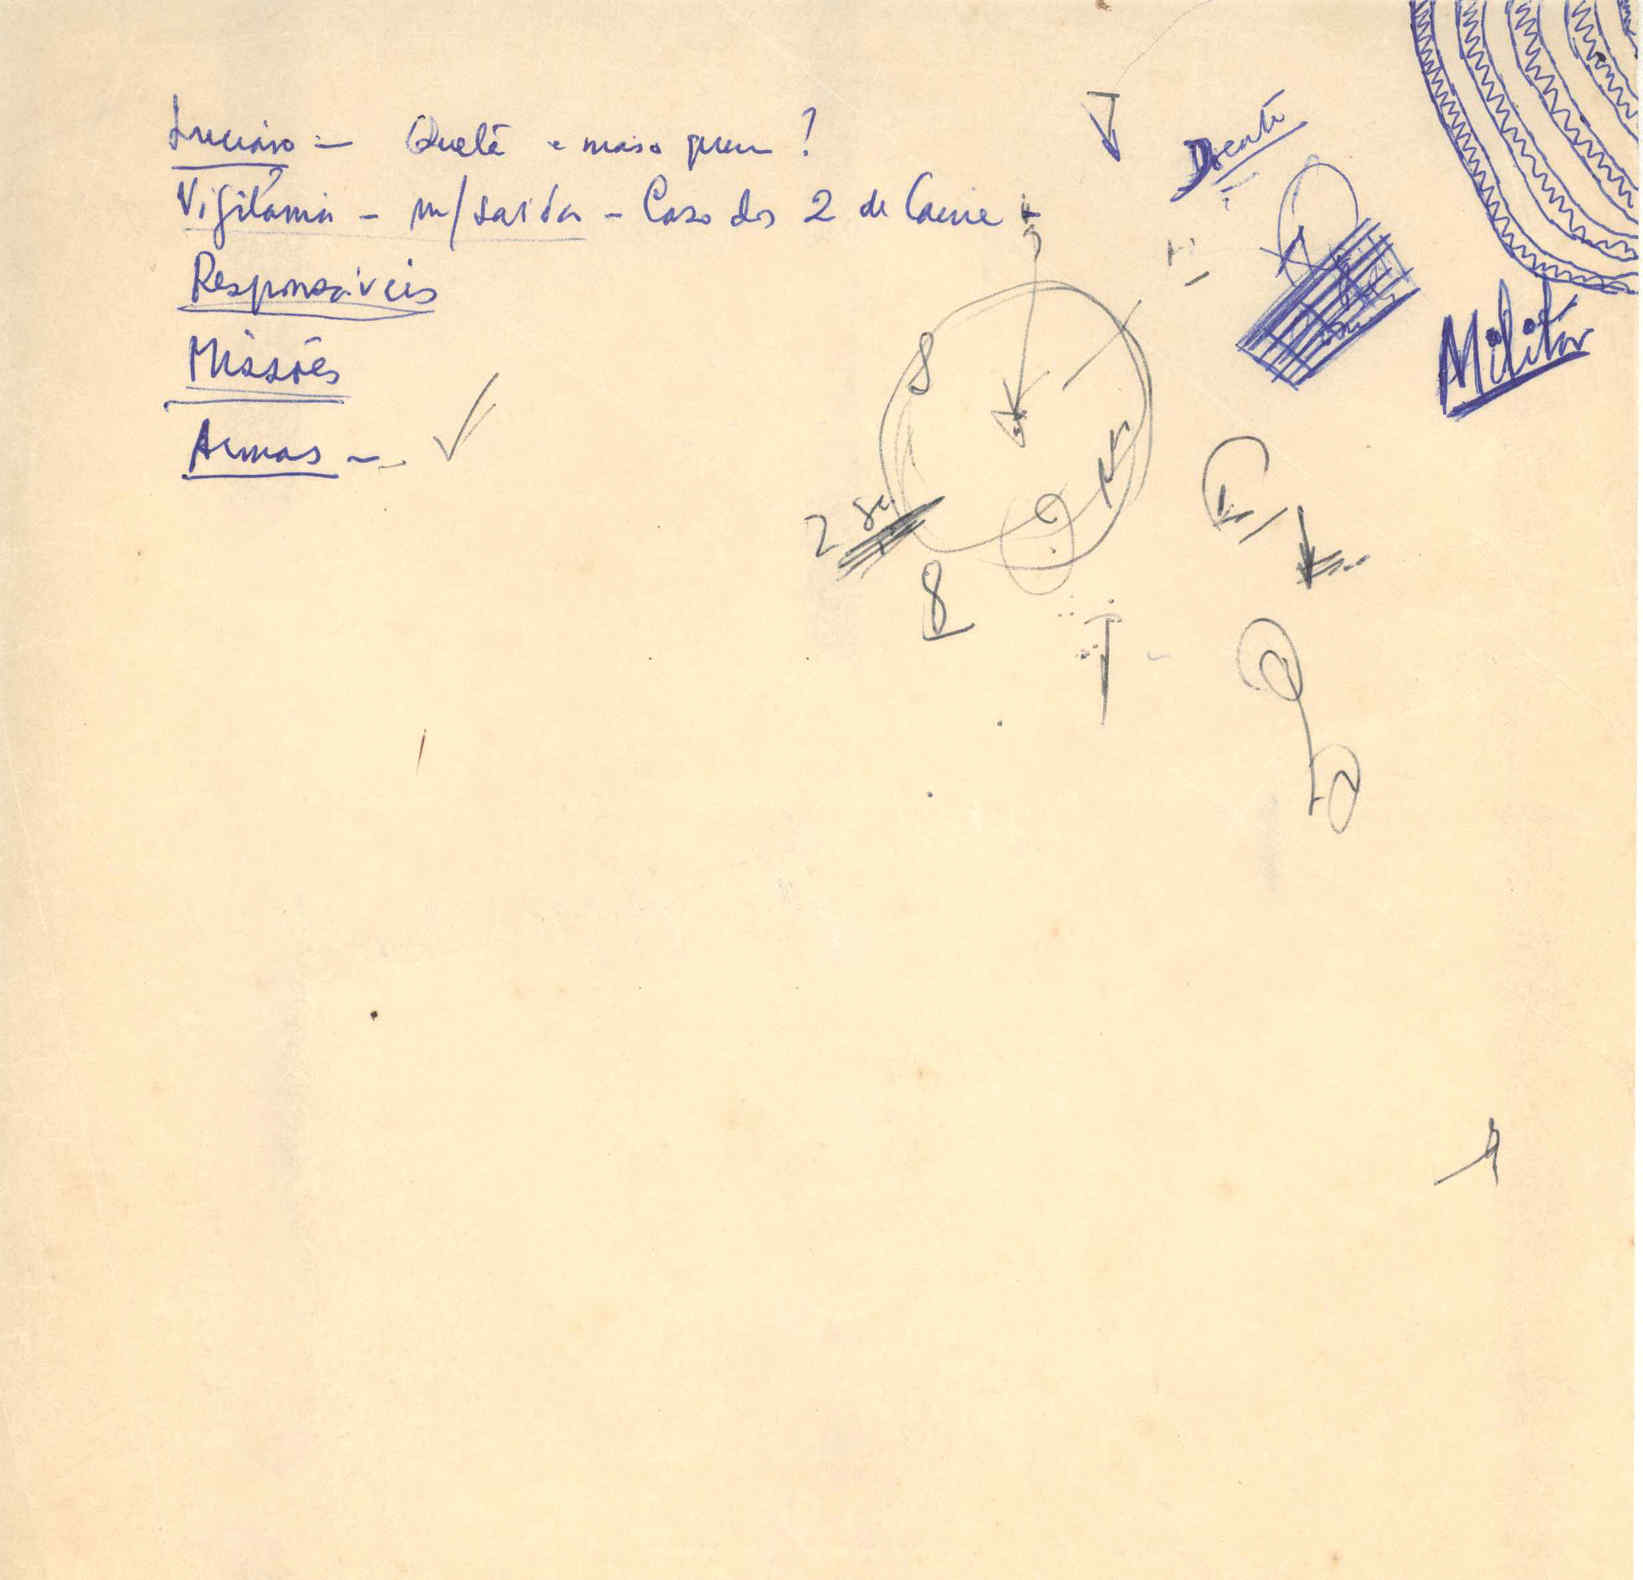 Luciano - Quetá e mais quem?
Vigilância - m/saída - Caso dos 2 de Caine
Responsáveis
Missões
Armas -
Doente
Militar
8
2
8